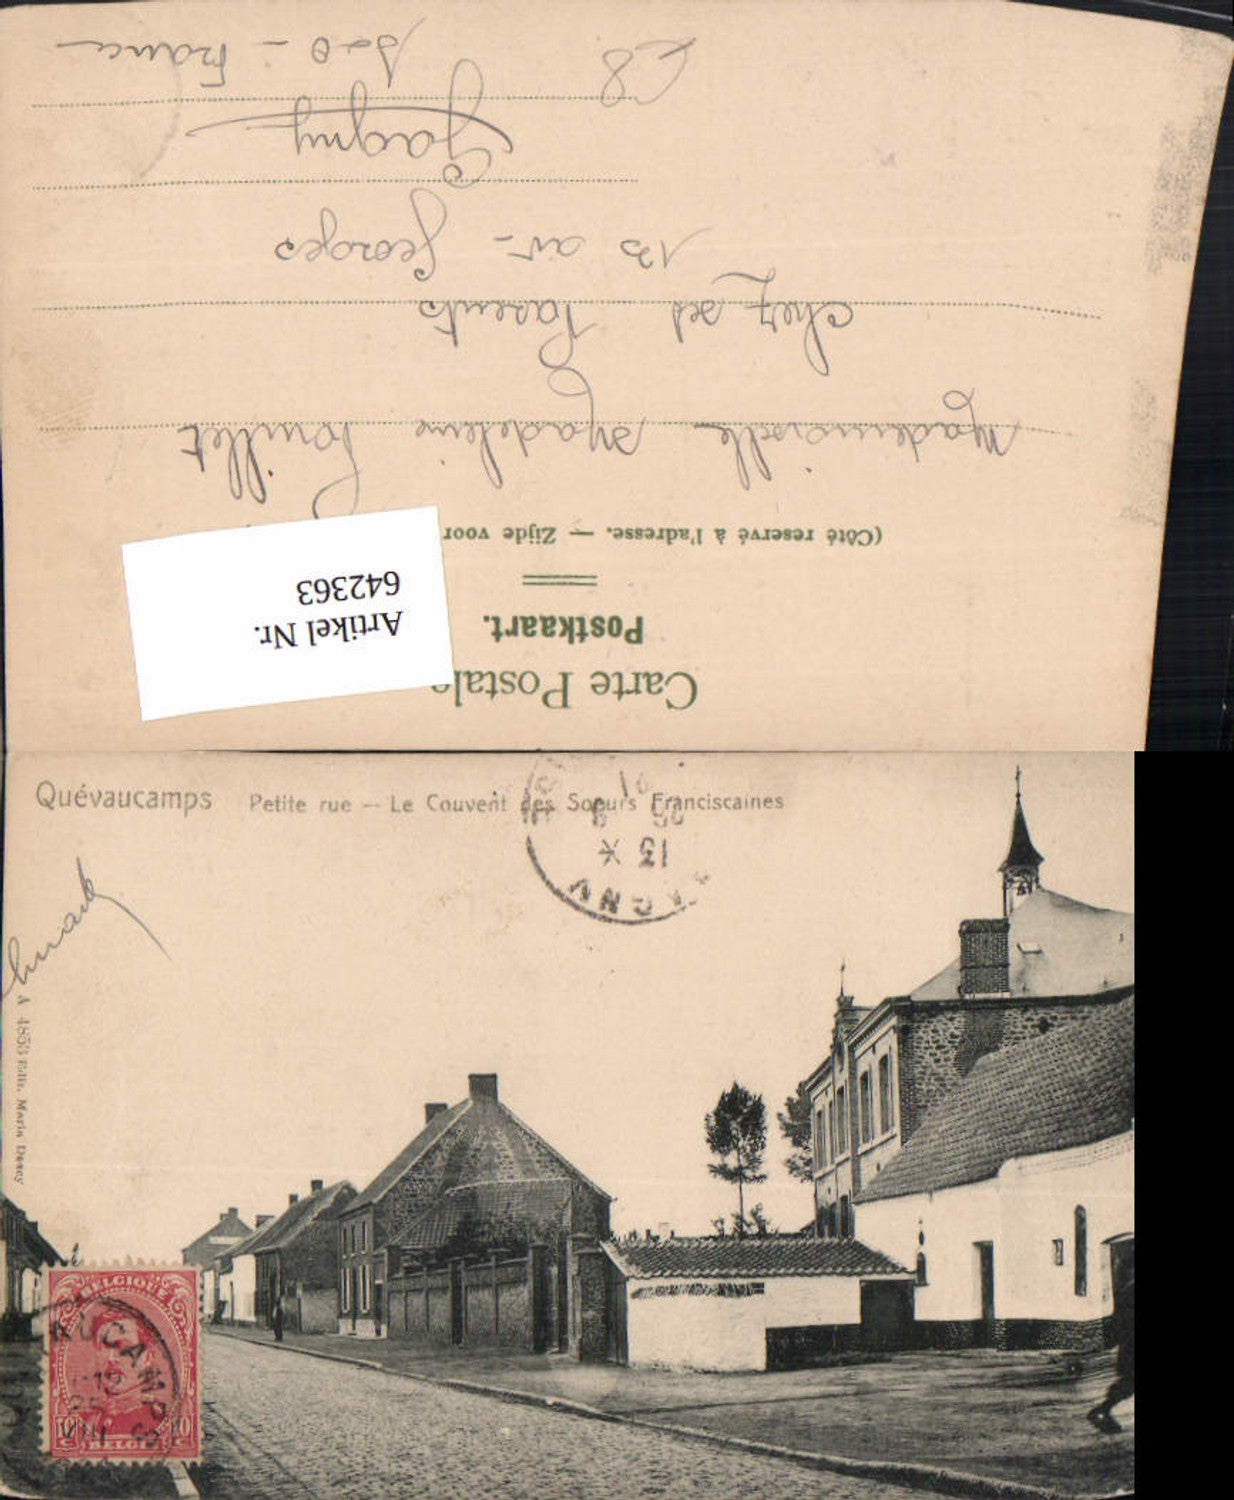 Carte Postale
Postkaart.
(Côté reservé à l'adresse. — Zijde voor
Artikel Nr.
642363
Mademoiselle Madeleine Pouillet
chez ses Parents
13 av. Georges
Gagny
S-et-O - France
Quévaucamps Petite rue — Le Couvent des Soeurs Franciscaines
GAGNY
13 *
A 4853 Edit. Maria Dascy
BELGIQUE
10 10
BELGIË
AUCAMPS
12
VIII